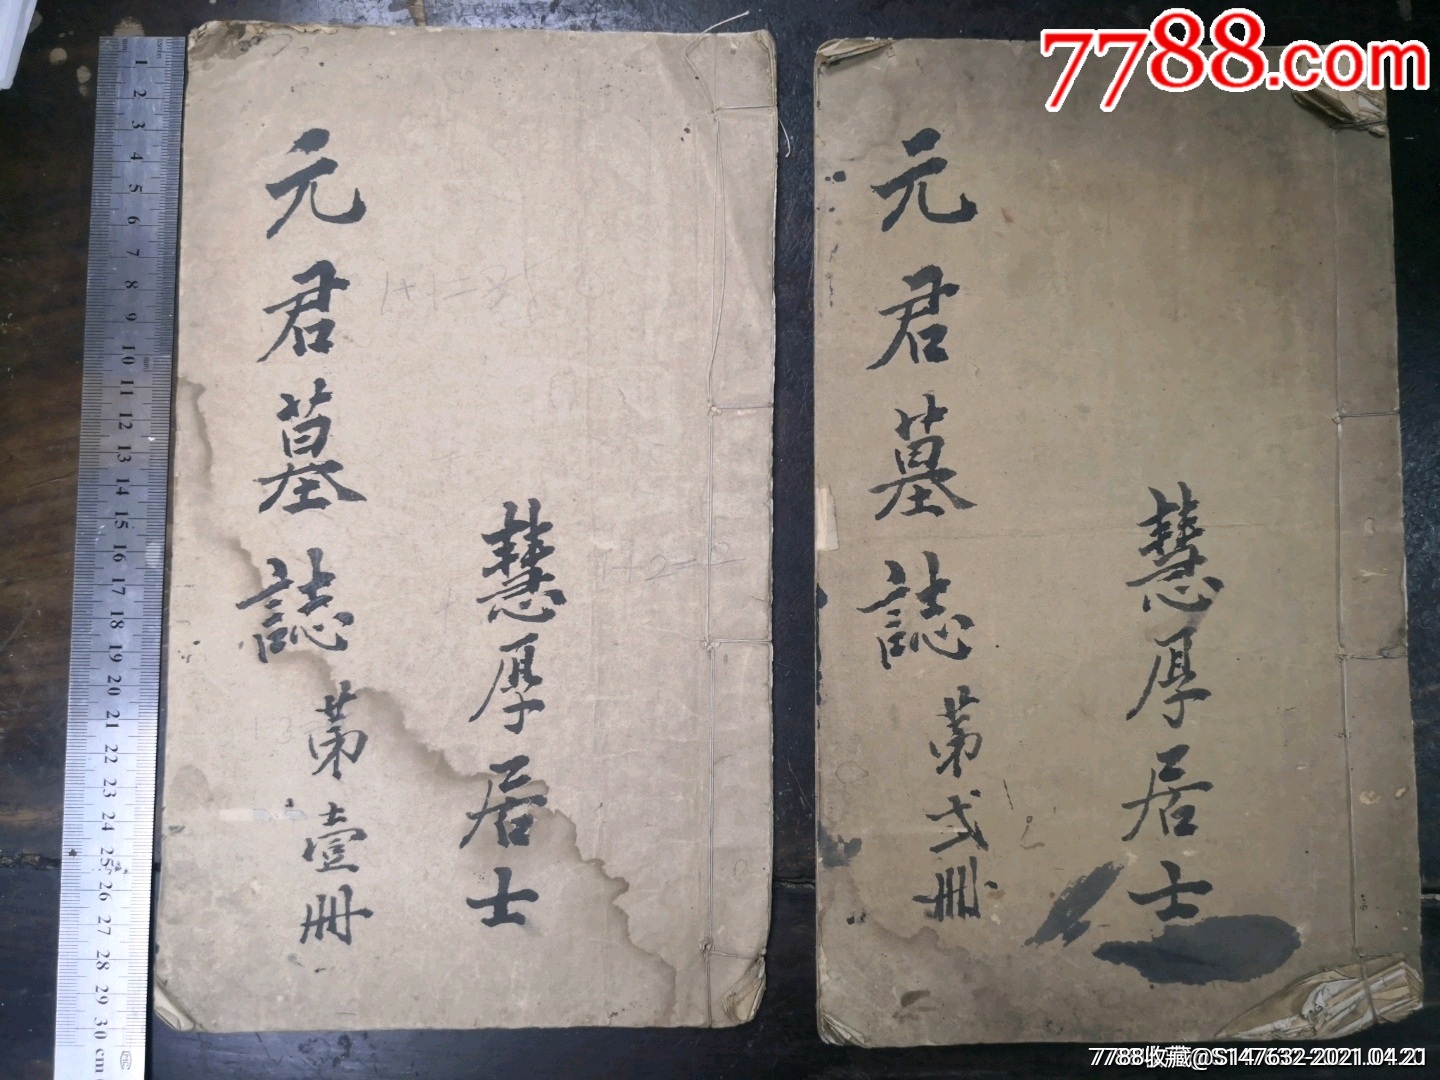 7788.com
元君墓誌 第壹冊
慧厚居士
1+1=
1+2=2
元君墓誌 第弍冊
慧厚居士
1 2 3 4 5 6 7 8 9 10 11 12 13 14 15 16 17 18 19 20 21 22 23 24 25 26 27 28 29 30 cm
7788收藏@S147632-2021.04.21